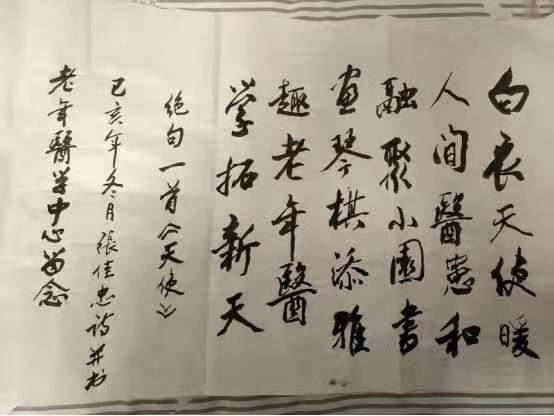 白衣天使暖
人间醫患和
融聚小園書
畫琴棋添雅
趣老年醫
学拓新天
绝句一首《天使》
己亥年冬月張佳忠詩并书
老年醫学中心留念